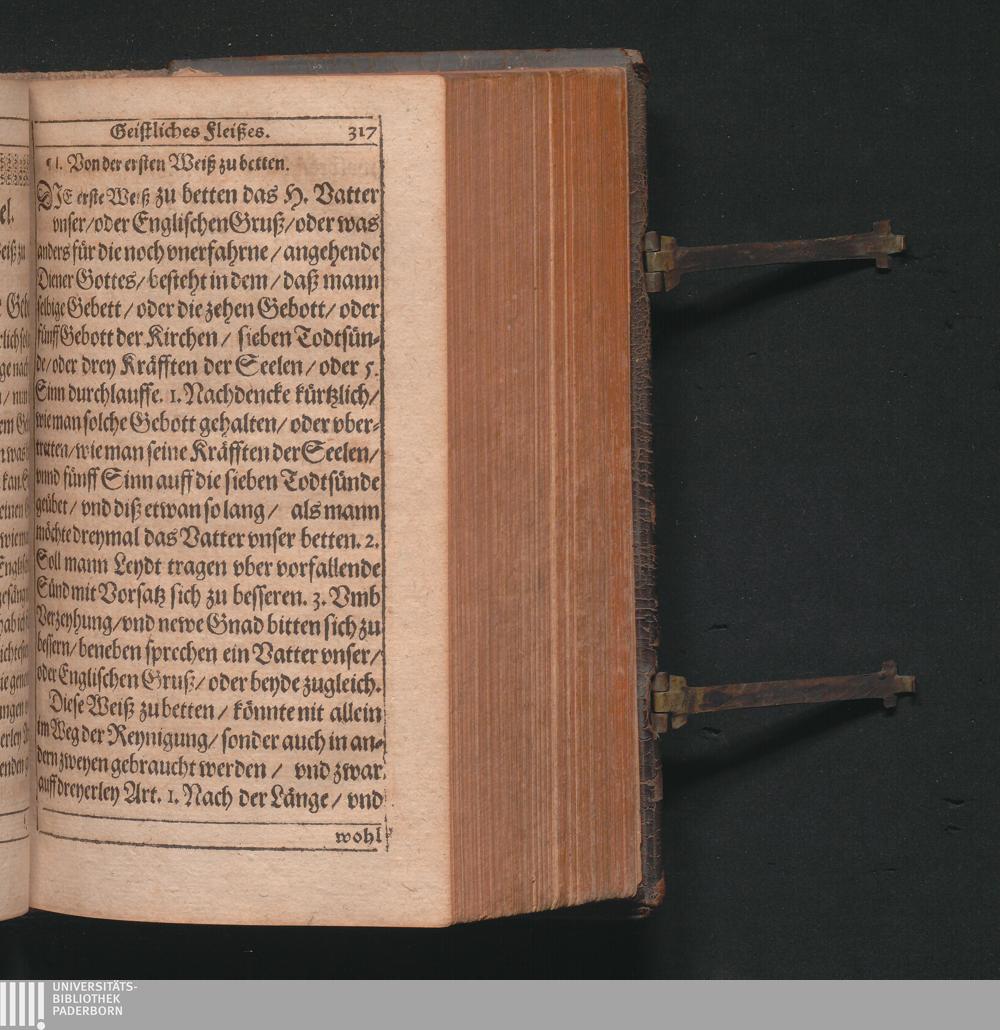 Geistliches Fleißes. 317
§ 1. Von der ersten Weiß zu betten.
DIE erste Weiß zu betten das H. Vatter
vnser / oder Englischen Gruß / oder was
anders für die noch vnerfahrne / angehende
Diener Gottes / besteht in dem / daß mann
selbige Gebett / oder die zehen Gebott / oder
fünff Gebott der Kirchen / sieben Todtsün-
de / oder drey Kräfften der Seelen / oder 5.
Sinn durchlauffe. 1. Nachdencke kürtzlich /
wie man solche Gebott gehalten / oder vber-
tretten / wie man seine Kräfften der Seelen /
vnnd fünff Sinn auff die sieben Todtsünde
geübet / vnd diß etwan so lang / als mann
möchte dreymal das Vatter vnser betten. 2.
Soll mann Leydt tragen vber vorfallende
Sünd mit Vorsatz sich zu besseren. 3. Vmb
Verzeyhung / vnd newe Gnad bitten sich zu
bessern / beneben sprechen ein Vatter vnser /
oder Englischen Gruß / oder beyde zugleich.
Diese Weiß zu betten / könnte nit allein
im Weg der Reynigung / sonder auch in an-
dern zweyen gebraucht werden / vnd zwar
auff dreyerley Art. 1. Nach der Länge / vnd
wohl
UNIVERSITÄTS-
BIBLIOTHEK
PADERBORN